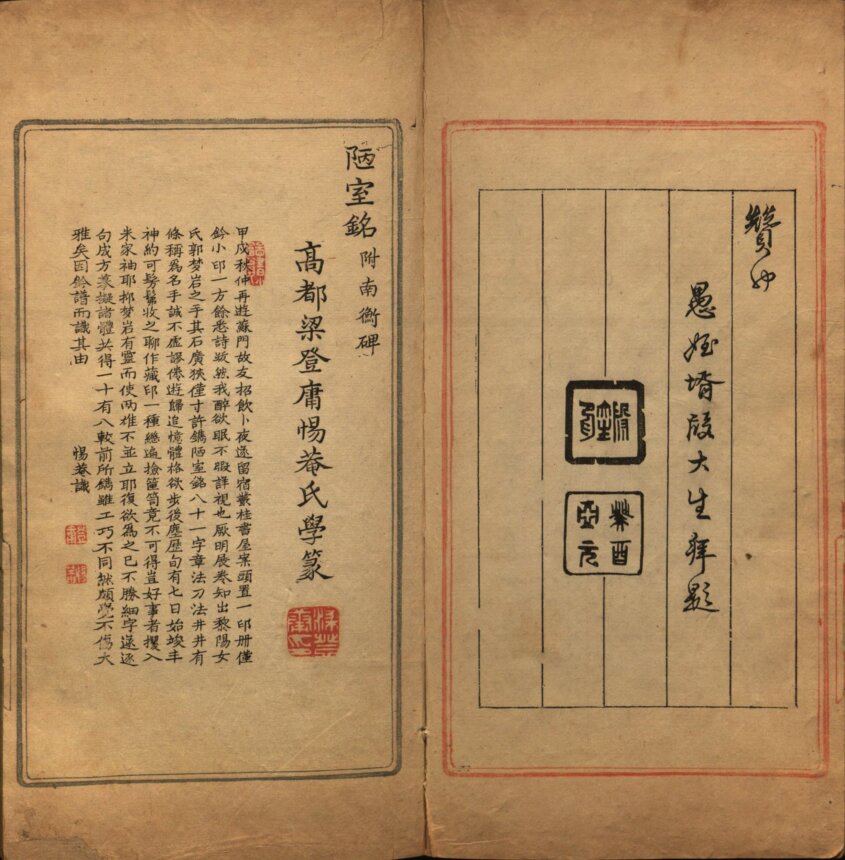 贊如
愚姪壻段大生拜題
癸酉亞元
陋室銘 附南衡碑
高都梁登庸惕菴氏學篆
甲戌秋仲再遊蘇門故友招飲卜夜遂留宿叢桂書屋案頭置一印冊僅
鈐小印一方餘悉詩歌然我醉欲眠不暇詳視也厥明展卷知出黎陽女
氏郭梦岩之手其石廣狹僅寸許鐫陋室銘八十一字章法刀法井井有
條稱爲名手誠不虛謬倦遊歸追憶體格欲步後塵歷旬有七日始竣丰
神約可髣髴收之聊作藏印一種繼遍撿篋笥竟不可得豈好事者攫入
米家袖耶抑梦岩有靈而使两雄不並立耶復欲爲之已不勝細字遂逐
句成方摹擬諸體共得一十有八較前所鐫雖工巧不同然頗覺不傷大
雅矣因鈐譜而識其由
惕菴識